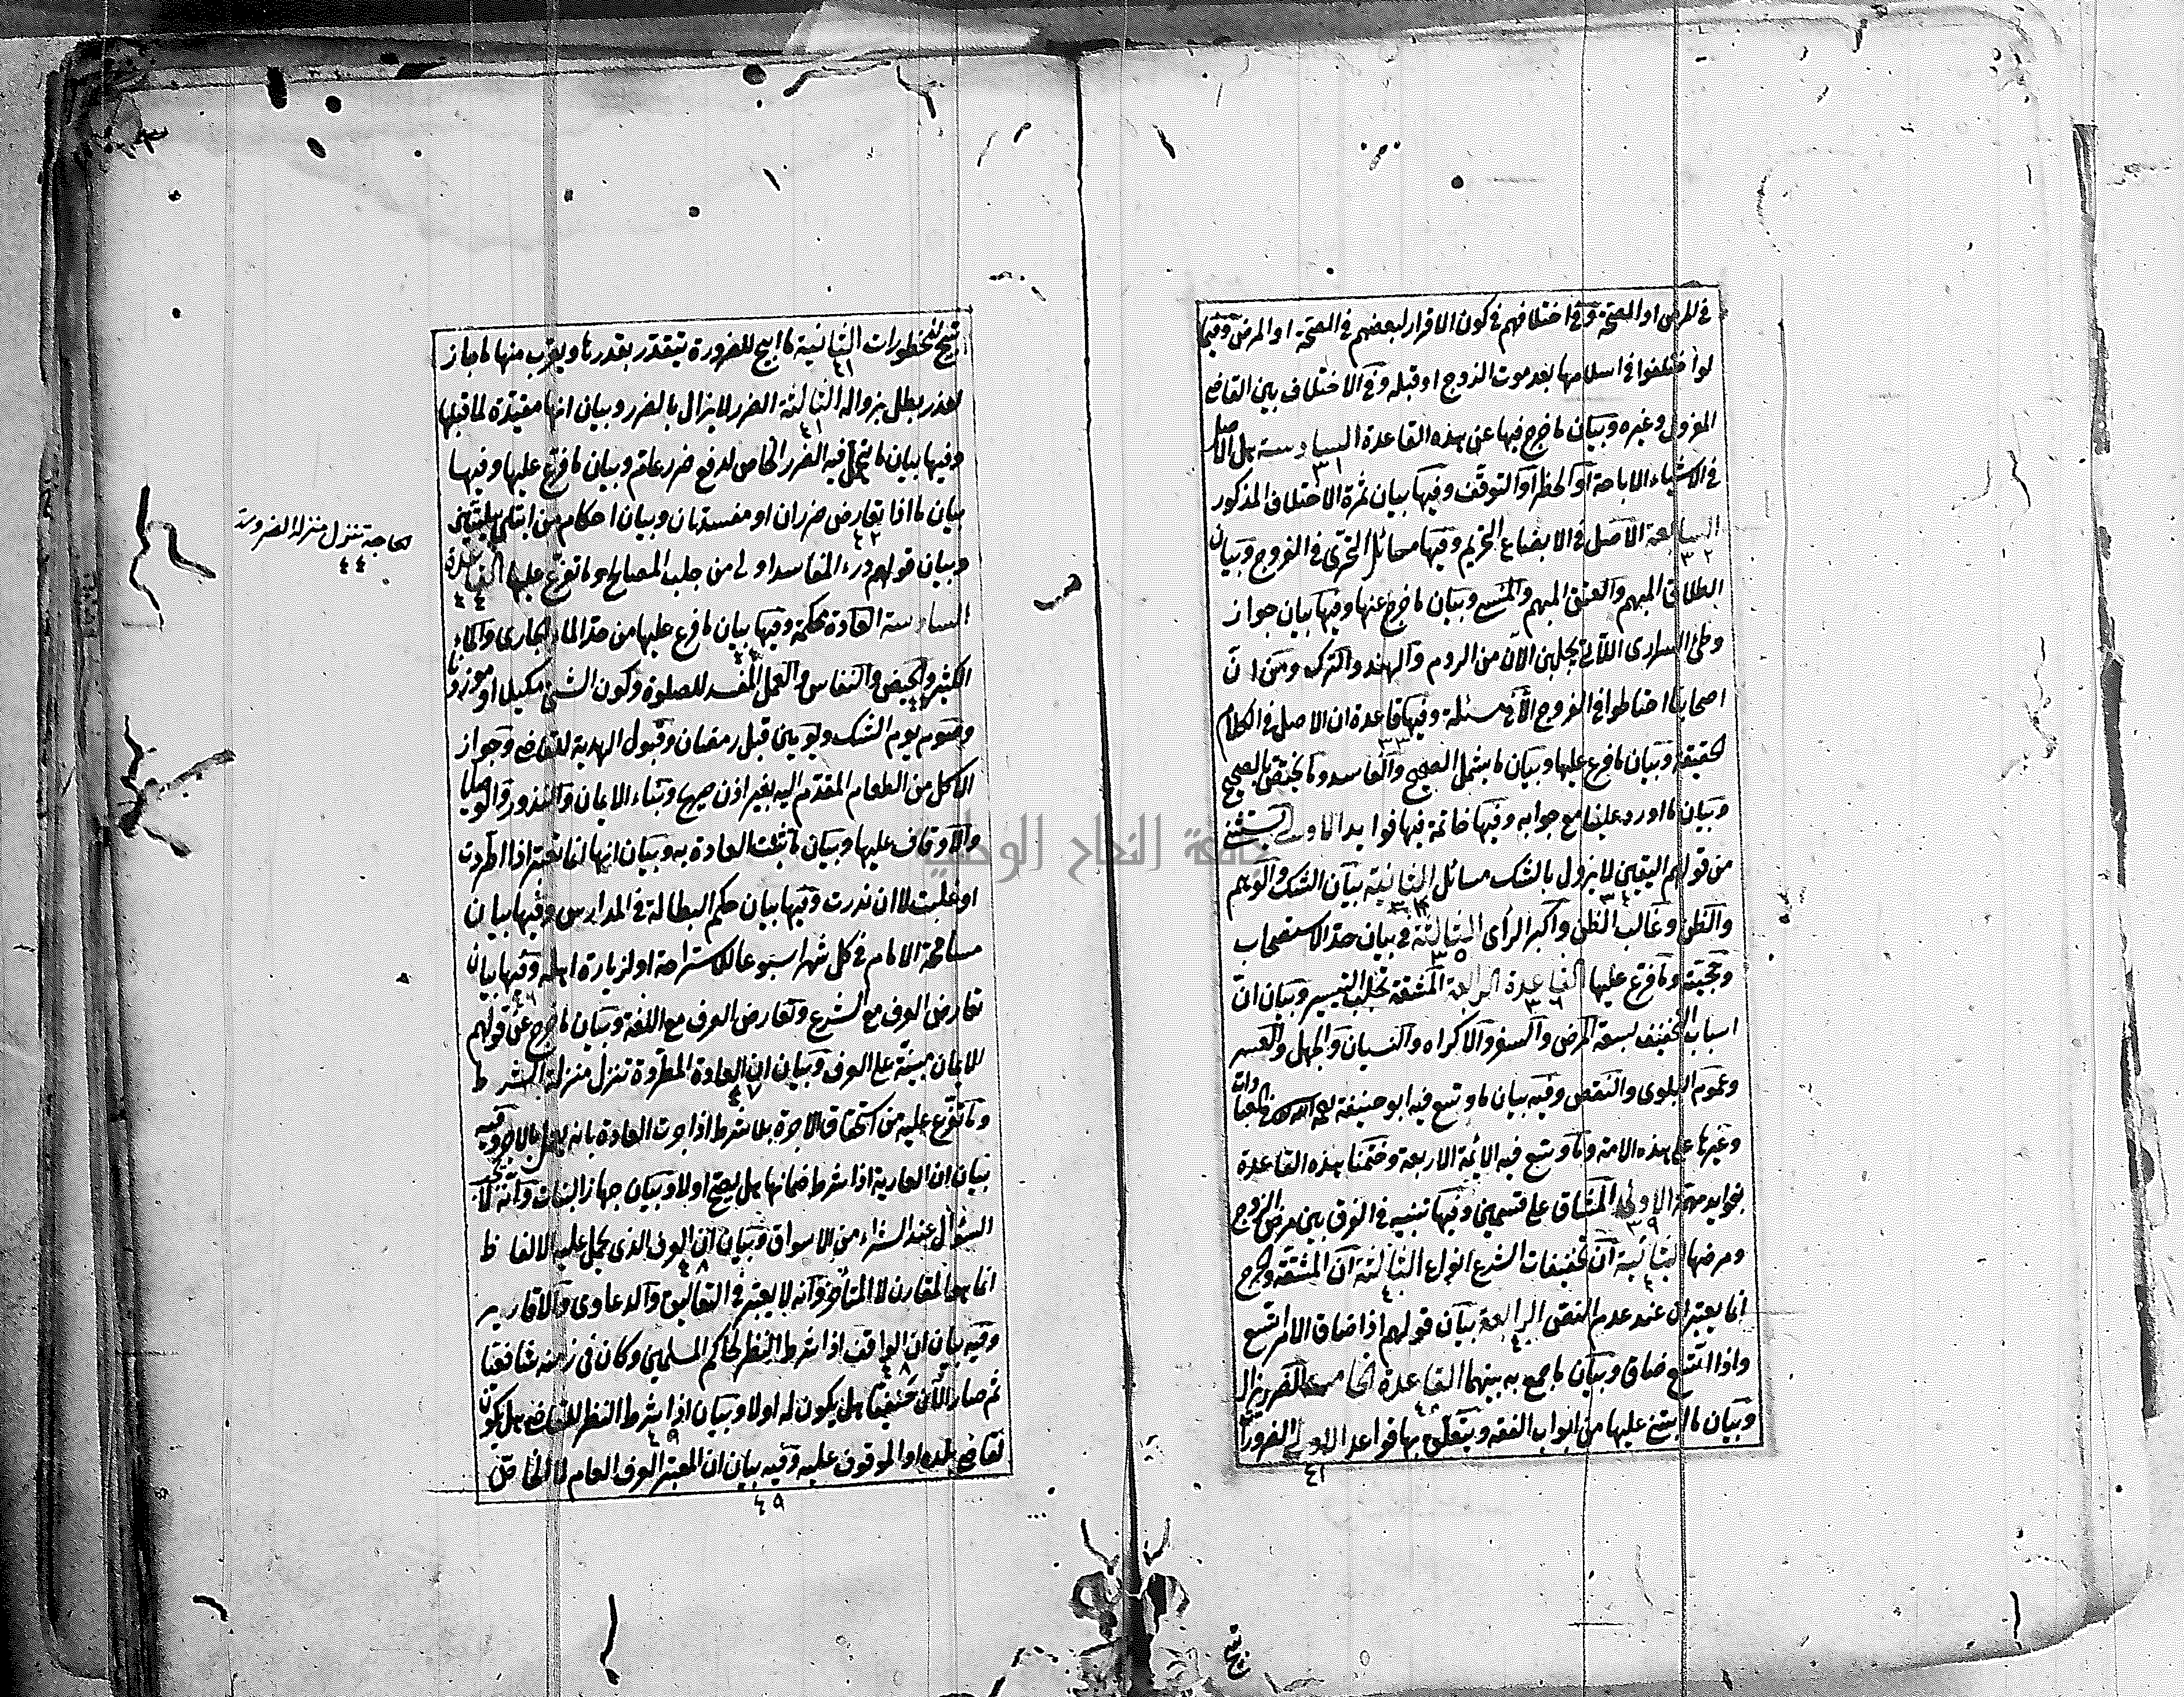 في المرض او الصحة وفي اختلافهم في كون الاقرار لبعضهم في الصحة او المرض وفيما
لو اختلفوا في اسلامها بعد موت الزوج او قبله وفي الاختلاف بين القاضي
المعزول وغيره وبيان ما خرج فيها عن هذه القاعدة السادسة هل الاصل
٣١
في الاشياء الاباحة او الحظر او التوقف وفيها بيان ثمرة الاختلاف المذكور
السابعة الاصل في الابضاع التحريم وفيها مسائل التحرى في الفروج وبيان
٣٢
الطلاق المبهم والعتق المبهم والمنسي وبيان ما خرج عنها وفيها بيان جواز
وطئ السرارى اللآتي يجلبن الآن من الروم والهند والترك ومن ان
اصحابنا احتاطوا في الفروج الا في مسئلة وفيها قاعدة ان الاصل في الكلام
٣٣
الحقيقة وبيان ما فرع عليها وبيان ما يشمل الصحيح والفاسد وما يختص بالصحيح
وبيان ما اورد علينا مع جوابه وفيها خاتمة فيها فوايد الاولى تستثني
من قولهم اليقين لا يزول بالشك مسائل الثانية بيان الشك والوهم
٣٤
والظن وغالب الظن واكبر الرأى الثالثة في بيان حد الاستصحاب
٣٥
وحجيته وما فرع عليها القاعدة الرابعة المشقة تجلب التيسير وبيان ان
٣٦
اسباب التخفيف سبعة المرض والسفر والاكراه والنسيان والجهل والعسر
وعموم البلوى والنقص وفيه بيان ما وسع فيه ابو حنيفة رحمه الله في العبادات
وغيرها على هذه الامة وما وسع فيه الائمة الاربعة وختمنا هذه القاعدة
بفوايد مهمة الاولى المشاق على قسمين وفيها تنبيه في الفرق بين مرض الزوج
٣٩
ومرضها الثانية ان تخفيفات الشرع انواع الثالثة ان المشقة والحرج
٤٠
انما يعتبران عند عدم النص الرابعة بيان قولهم اذا ضاق الامر اتسع
واذا اتسع ضاق وبيان ما جمع به بينهما القاعدة الخامسة الضرر يزال
وبيان ما ابتنى عليها من ابواب الفقه ويتعلق بها قواعد الاولى الضرورات
٤١
تبيح
تبيح المحظورات الثانية ما ابيح للضرورة يتقدر بقدرها ويقرب منها ما جاز
٤١
لعذر بطل بزواله الثالثة الضرر لا يزال بالضرر وبيان انها مقيدة لما قبلها
٤١
وفيها بيان ما يتحمل فيه الضرر الخاص لدفع ضرر عام وبيان ما فرع عليها وفيها
بيان ما اذا تعارض ضرران او مفسدتان وبيان احكام من ابتلي ببليتين
٤٢
وبيان قولهم درء المفاسد اولى من جلب المصالح وما تفرع عليها القاعدة
٤٤
الحاجة تنزل منزلة الضرورة
٤٤
السادسة العادة محكمة وفيها بيان ما فرع عليها من حد الماء الجارى والماء
الكثير والحيض والنفاس والعمل المفسد للصلوة وكون الشئ مكيلا او موزونا
وصوم يوم الشك ولو بين قبل رمضان وقبول الهدية للقاضي وجواز
الاكل من الطعام المقدم اليه بغير اذن صريح وبناء الايمان والنذور والوصايا
والاوقاف عليها وبيان ما ثبت العادة به وبيان انها انما تعتبر اذا اطردت
او غلبت لا ان ندرت وفيها بيان حكم البطالة في المدارس وفيها بيان
مسامحة الامام في كل شهر اسبوعا للاستراحة او لزيارة اهله وفيها بيان
تعارض العرف مع الشرع وتعارض العرف مع اللغة وبيان ما خرج عن قولهم
الايمان مبنية على العرف وبيان ان العادة المطردة تنزل منزلة الشرط
٤٧
وما تفرع عليه من استحقاق الاجرة بلا شرط اذا جرت العادة بانه يعمل بالاجر وفيه
بيان ان العارية اذا شرط ضمانها هل يصح اولا وبيان جهاز البنات وانه لا
السؤال عند الشراء من الاسواق وبيان ان العرف الذى يحمل عليه الالفاظ
٤٨
انما هو المقارن لا المتاخر وانه لا يعتبر في التعاليق والدعاوى والاقارير
وفيه بيان ان الواقف اذا شرط النظر لحاكم المسلمين وكان في زمنه شافعيا
٤٨
ثم صار الآن حنفيا هل يكون له اولا وبيان اذا شرط النظر للقاضي هل يكون
٤٩
لقاضي بلده او الموقوف عليه وفيه بيان ان المعتبر العرف العام لا الخاص
٤٩
جامعة النجاح الوطنية